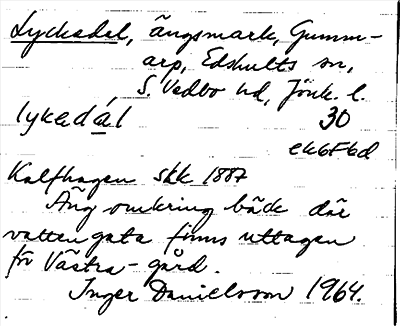 Lyckedal, ängsmark, Gumm-
arp, Edshults sn,
S. Vedbo hd, Jönk. l.
lykedál 30
ek6F6d
Kalfhagen skk 1887
Äng omkring bäck där
vatten gata finns uttagen
för Västra-gård.
Inger Danielsson 1964.